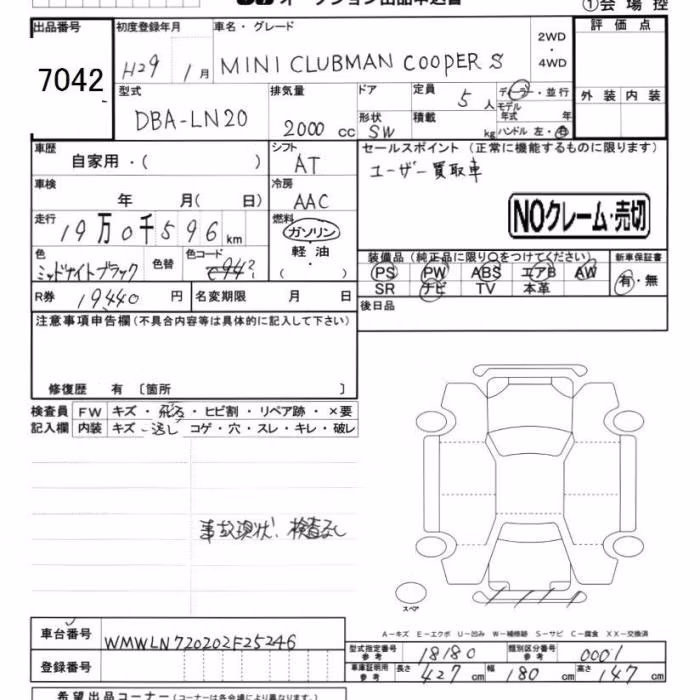 オークション出品申込書
①会場控
出品番号 7042
初度登録年月 H29 1月
車名・グレード MINI CLUBMAN COOPER S
2WD・4WD
評価点
外装 内装
型式 DBA-LN20
排気量 2000 cc
ドア
形状 SW
定員 5人
積載 kg
ディーラー・並行
モデル年式 年
ハンドル 左・右
車歴 自家用・( )
シフト AT
セールスポイント(正常に機能するものに限ります)
ユーザー買取車
車検 年 月( 日)
冷房 AAC
NOクレーム・売切
走行 19万0千596km
燃料 ガソリン・軽油・( )
色 ミッドナイトブラック
色替
色コード
装備品(純正品に限り○をつけてください)
新車保証書
PS PW ABS エアB AW
有・無
SR ナビ TV 本革
R券 19440円
名変期限 月 日
後日品
注意事項申告欄(不具合内容等は具体的に記入して下さい)
修復歴 有〔箇所 〕
検査員記入欄
FW キズ・飛石・ヒビ割・リペア跡・×要
内装 キズ・コゲ・穴・スレ・キレ・破レ
事故現状! 検査なし
スペア
A-キズ E-エクボ U-凹み W-補修跡 S-サビ C-腐食 XX-交換済
車台番号 WMWLN720202F25246
登録番号
型式指定番号参考 18180
類別区分番号参考 0001
車庫証明用参考 長さ 427cm 幅 180cm 高さ 147cm
希望出品コーナー(コーナーは各会場により異なります。)